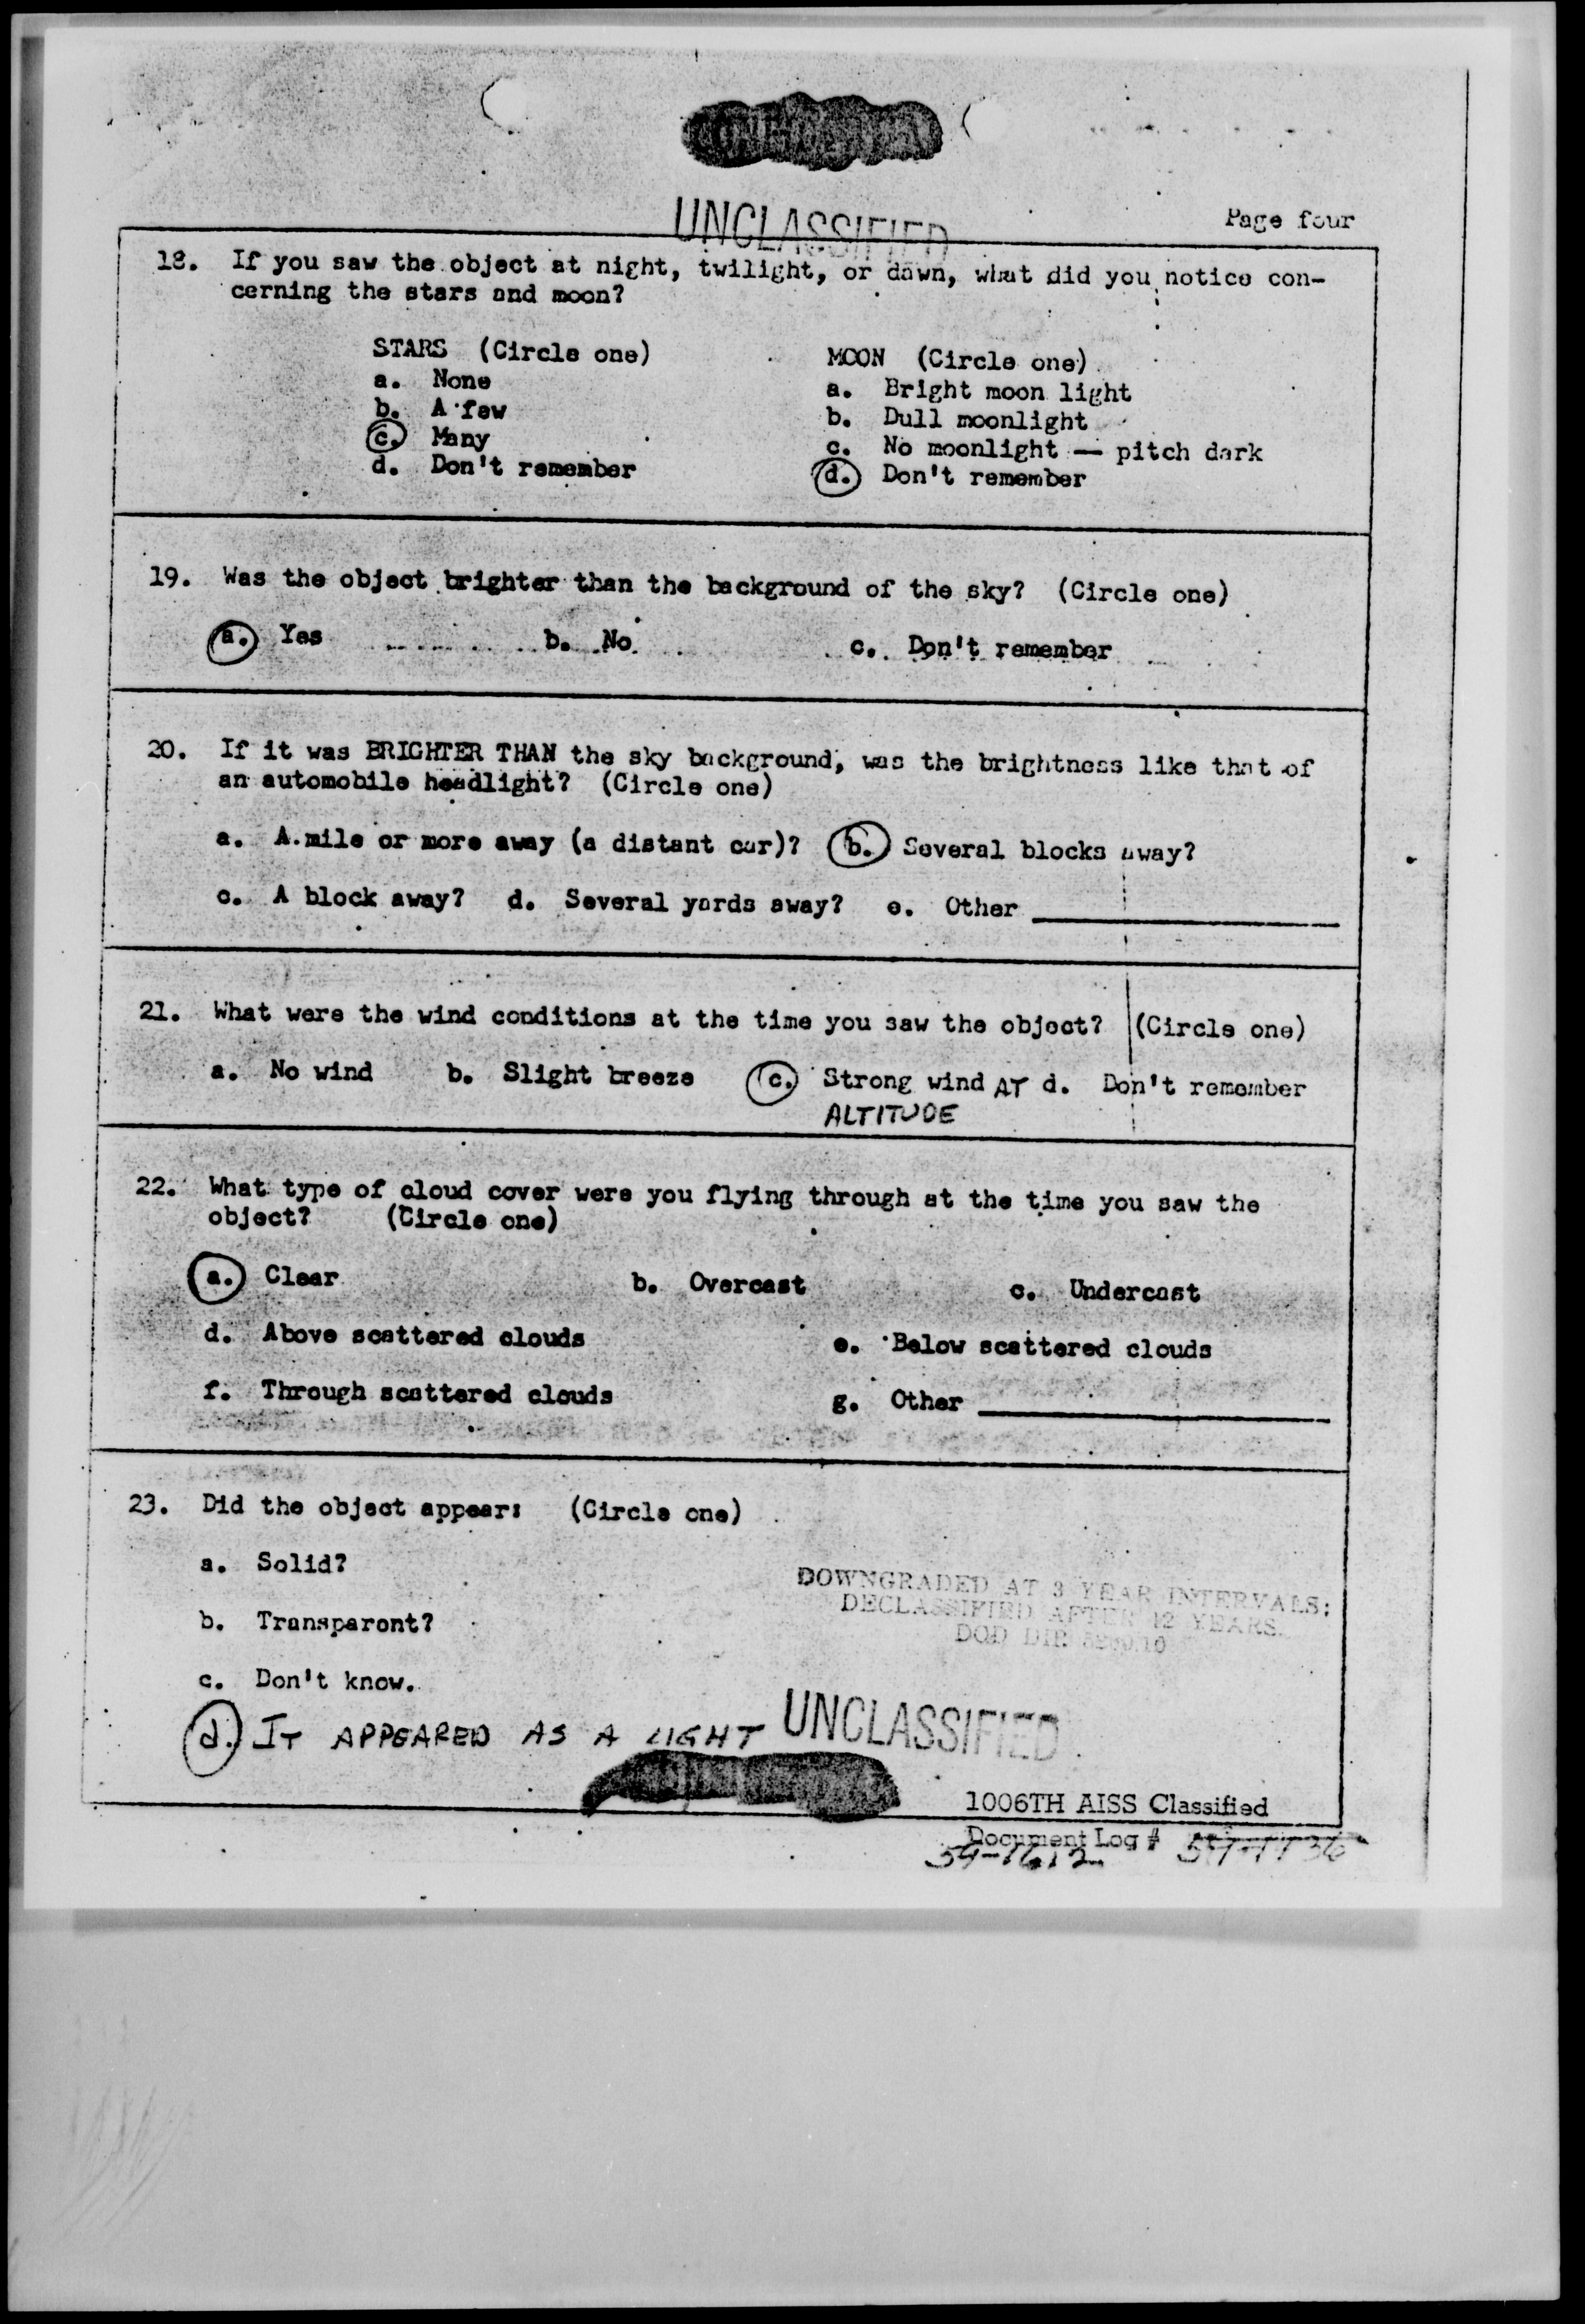 UNCLASSIFIED
Page four
18. If you saw the object at night, twilight, or dawn, what did you notice con-
cerning the stars and moon?
STARS (Circle one)
a. None
b. A few
c. Many
d. Don't remember
MOON (Circle one)
a. Bright moon light
b. Dull moonlight
c. No moonlight — pitch dark
d. Don't remember
19. Was the object brighter than the background of the sky? (Circle one)
a. Yes b. No c. Don't remember
20. If it was BRIGHTER THAN the sky background, was the brightness like that of
an automobile headlight? (Circle one)
a. A mile or more away (a distant car)? b. Several blocks away?
c. A block away? d. Several yards away? e. Other
21. What were the wind conditions at the time you saw the object? (Circle one)
a. No wind b. Slight breeze c. Strong wind AT d. Don't remember
ALTITUDE
22. What type of cloud cover were you flying through at the time you saw the
object? (Circle one)
a. Clear b. Overcast c. Undercast
d. Above scattered clouds e. Below scattered clouds
f. Through scattered clouds g. Other
23. Did the object appear: (Circle one)
a. Solid?
b. Transparent?
c. Don't know.
d. IT APPEARED AS A LIGHT
DOWNGRADED AT 3 YEAR INTERVALS;
DECLASSIFIED AFTER 12 YEARS.
DOD DIR 5200.10
UNCLASSIFIED
1006TH AISS Classified
Document Log #
59-1612